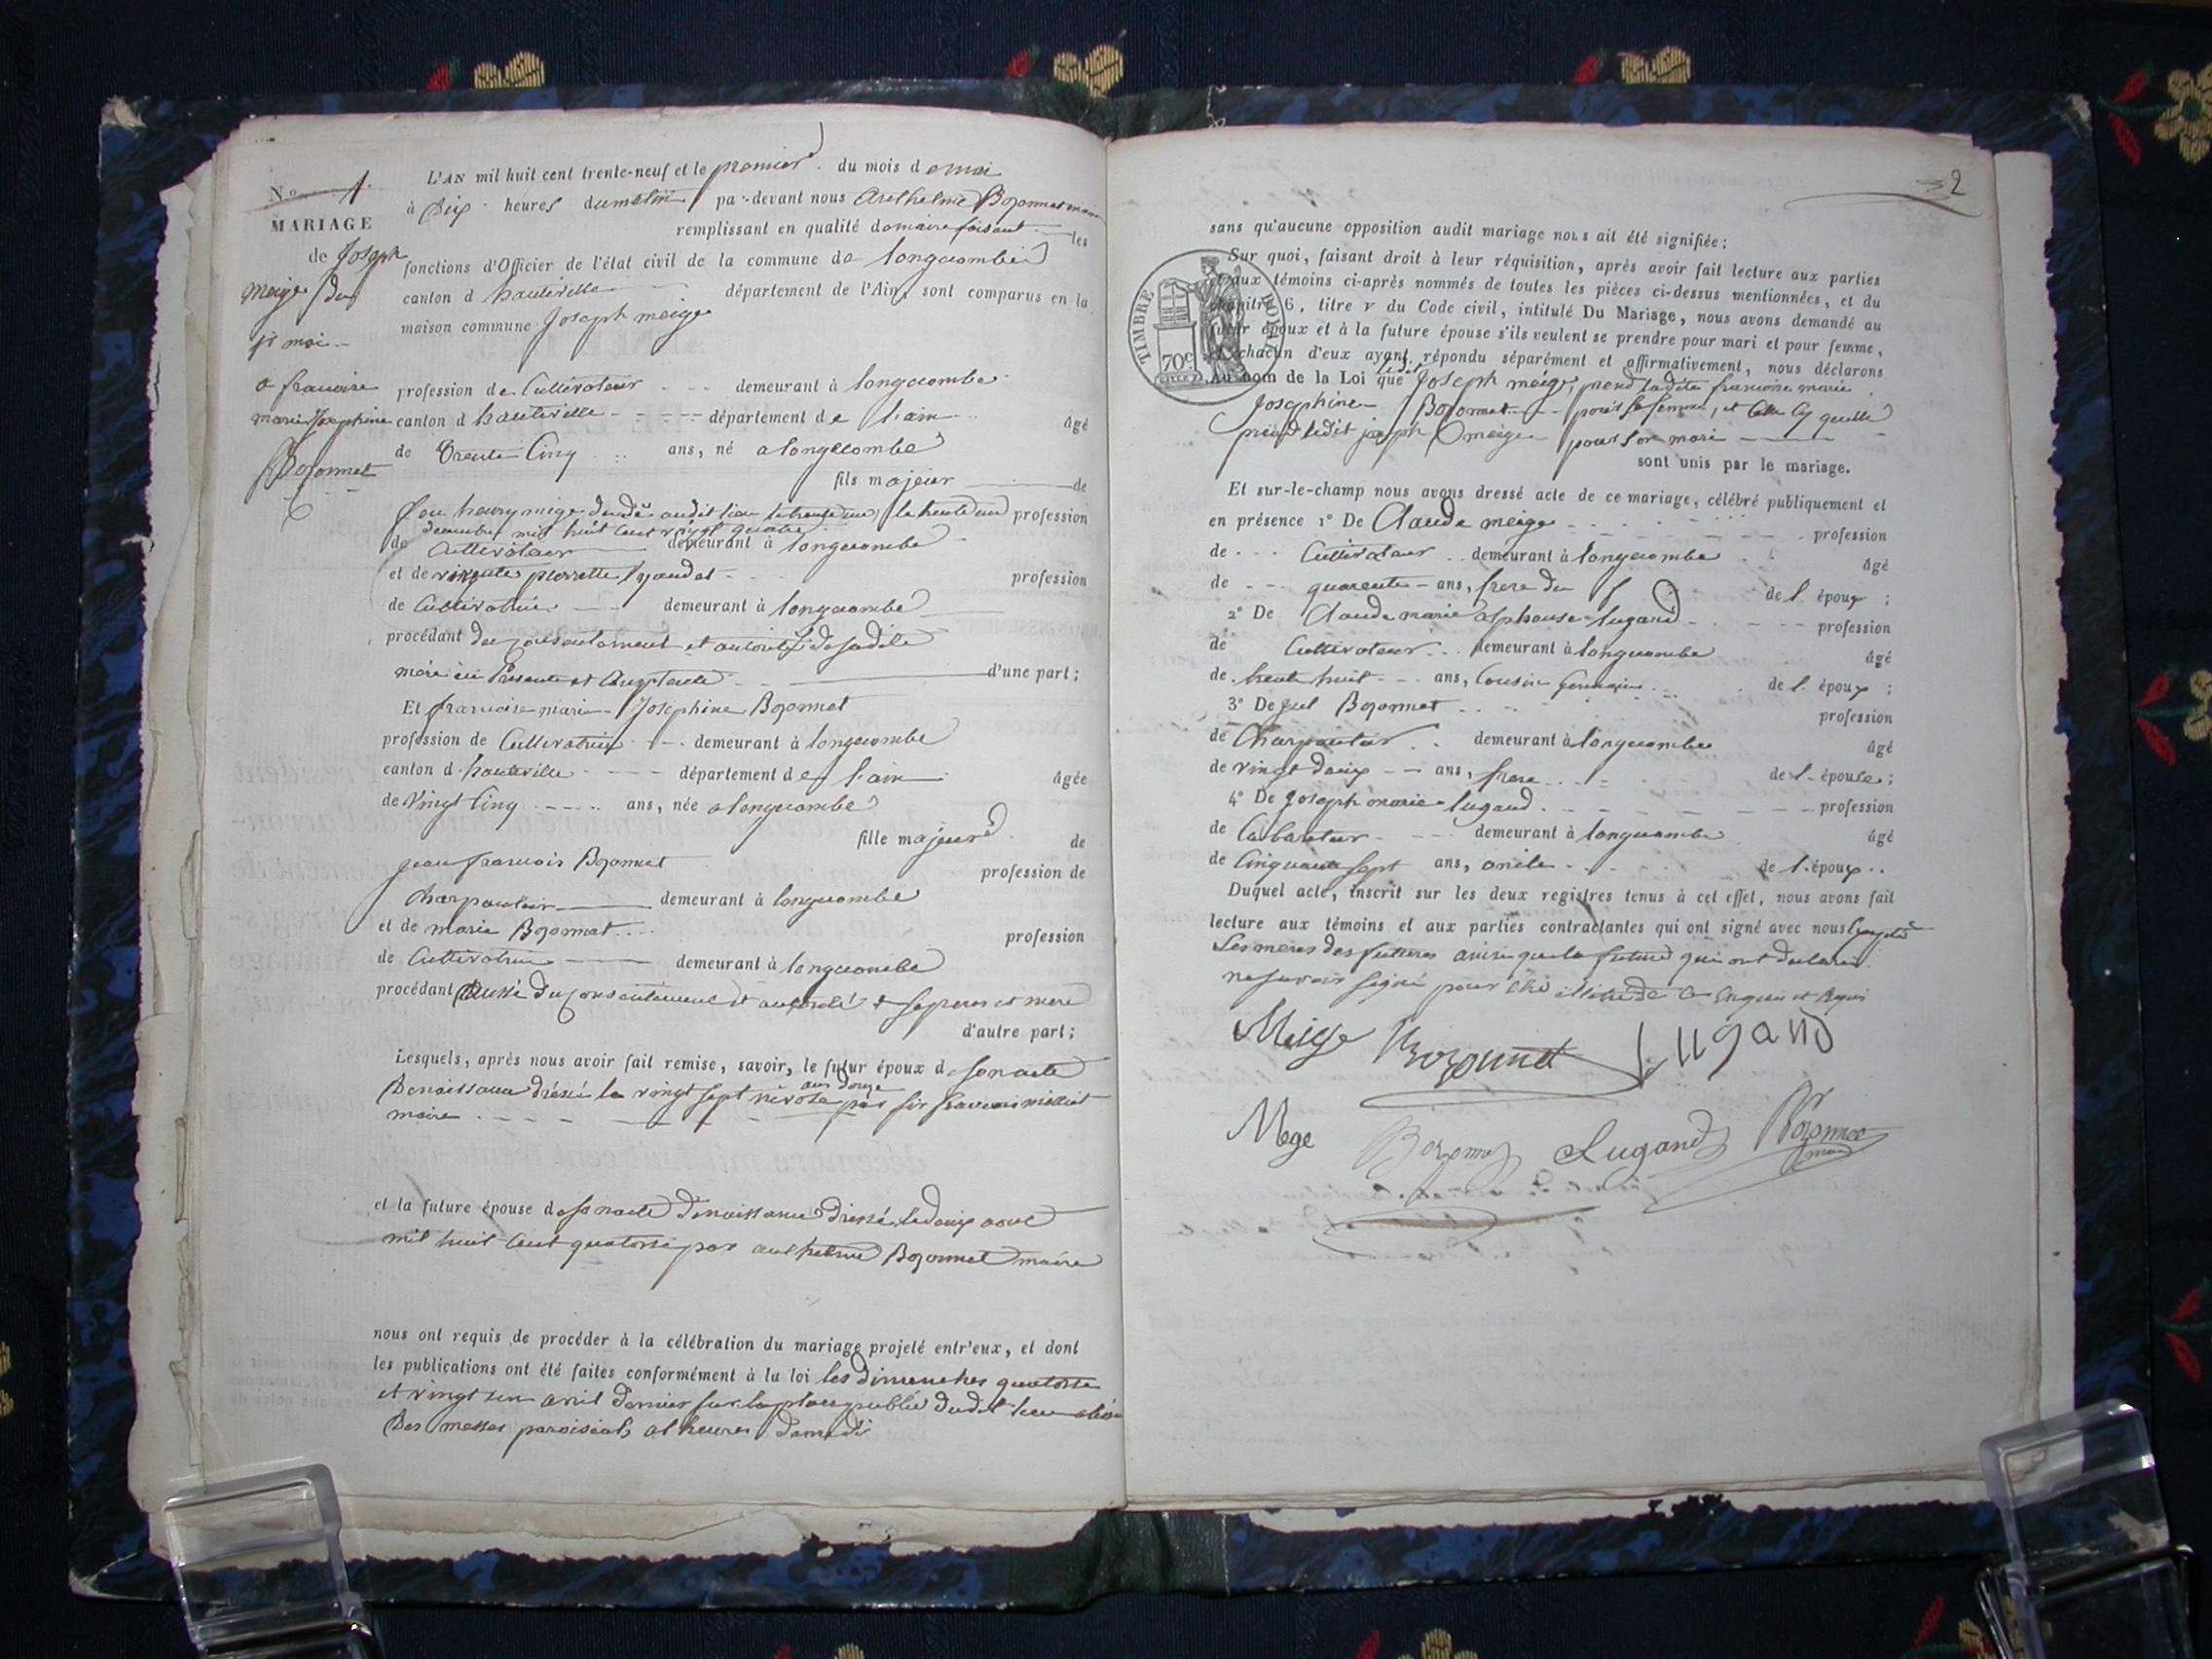 No 1.
MARIAGE
de Joseph
meige / du
1er mai
a francoise
marie Josephine
Bozonnet
L'AN mil huit cent trente-neuf et le premier du mois de mai
à Dix heures du matin pa-devant nous Anthelme Bozonnet maire
remplissant en qualité de maire faisant les
fonctions d'Officier de l'état civil de la commune de longecombe
canton d hauteville département de l'Ain, sont comparus en la
maison commune Joseph meige
profession de Cultivateur demeurant à longecombe
canton d hauteville département de l'ain âgé
de trente Cinq ans, né a longecombe
fils majeur de
feu henry meige decede audit lieu le trente un profession
decembre mil huit cent vingt quatre
de Cultivateur demeurant à longecombe
et de pierrette profession
de Cultivatrice demeurant à longecombe
procédant du consentement et autorité de sadite
mère ici Présente et acceptante d'une part;
Et francoise marie Josephine Bozonnet
profession de Cultivatrice demeurant à longecombe
canton d hauteville département de l'ain âgée
de Vingt Cinq ans, née a longecombe
fille majeure de
jean francois Bozonnet profession de
charpentier demeurant à longecombe
et de marie Bozonnet profession
de Cultivatrice demeurant à longecombe
procédant aussi du consentement et autorité de ses pere et mere
d'autre part;
Lesquels, après nous avoir fait remise, savoir, le futur époux de son acte
De naissance dréssé le vingt sept nivose an douze par sir francois milliet
maire
et la future épouse de son acte De naissance Dressé le Deux aout
mil huit Cent quatorse par anthelme Bozonnet maire
nous ont requis de procéder à la célébration du mariage projeté entr'eux, et dont
les publications ont été faites conformément à la loi les Dimanches quatorse
et vingt un avril Dernier sur la place publique dudit lieu
Des messes paroisiales a l heures de midi
2
sans qu'aucune opposition audit mariage nous ait été signifiée;
Sur quoi, faisant droit à leur réquisition, après avoir fait lecture aux parties
et aux témoins ci-après nommés de toutes les pièces ci-dessus mentionnées, et du
chapitre 6, titre v du Code civil, intitulé Du Mariage, nous avons demandé au
futur époux et à la future épouse s'ils veulent se prendre pour mari et pour femme,
et chacun d'eux ayant répondu séparément et affirmativement, nous déclarons
Au nom de la Loi que ledit Joseph meige, prend ladite francoise marie
Josephine Bozonnet pour sa femme, et quelle
prend ledit joseph meige pour son mari
sont unis par le mariage.
TIMBRE ROYAL
70c
Et sur-le-champ nous avons dressé acte de ce mariage, célébré publiquement et
en présence 1° De Claude meige profession
de Cultivateur demeurant à longecombe âgé
de quarente ans, frere du de l époux;
2° De Claude marie alphonse lugand profession
de Cultivateur demeurant à longecombe âgé
de trente huit ans, Cousin Germain de l époux;
3° De jul Bozonnet profession
de Charpentier demeurant à longecombe âgé
de vingt deux ans, frere de l épouse;
4° De Joseph marie lugand profession
de Cabaretier demeurant à longecombe âgé
de Cinquante sept ans, oncle de l époux
Duquel acte, inscrit sur les deux registres tenus à cet effet, nous avons fait
lecture aux témoins et aux parties contractantes qui ont signé avec nous excepté
Les meres des futures ainsi que la future qui ont declarer
ne savoir signé pour etre illitéré de ce enquis et Requis
Meige Bozonnet Lugand
Mege Bozonnet Lugand Bozonnet
maire